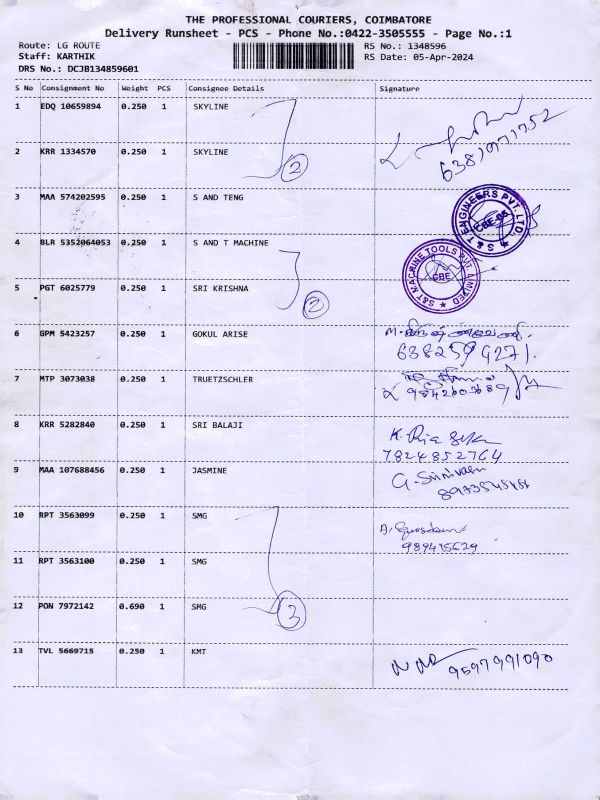 THE PROFESSIONAL COURIERS, COIMBATORE
Delivery Runsheet - PCS - Phone No.:0422-3505555 - Page No.:1
Route: LG ROUTE
RS No.: 1348596
Staff: KARTHIK
RS Date: 05-Apr-2024
DRS No.: DCJB134859601
S No Consignment No Weight PCS Consignee Details Signature
1 EDQ 10659894 0.250 1 SKYLINE
6381971752
2 KRR 1334570 0.250 1 SKYLINE
2
3 MAA 574202595 0.250 1 S AND TENG
S&T ENGINEERS PVT. LTD. CBE-05
4 BLR 5352064053 0.250 1 S AND T MACHINE
S&T MACHINE TOOLS PVT. LIMITED CBE
5 PGT 6025779 0.250 1 SRI KRISHNA
2
6 GPM 5423257 0.250 1 GOKUL ARISE
6382599271.
7 MTP 3073038 0.250 1 TRUETZSCHLER
8 KRR 5282840 0.250 1 SRI BALAJI
7824852764
9 MAA 107688456 0.250 1 JASMINE
G. Srinivasan
10 RPT 3563099 0.250 1 SMG
989415529
11 RPT 3563100 0.250 1 SMG
12 PON 7972142 0.690 1 SMG
3
13 TVL 5669715 0.250 1 KMT
9597991090